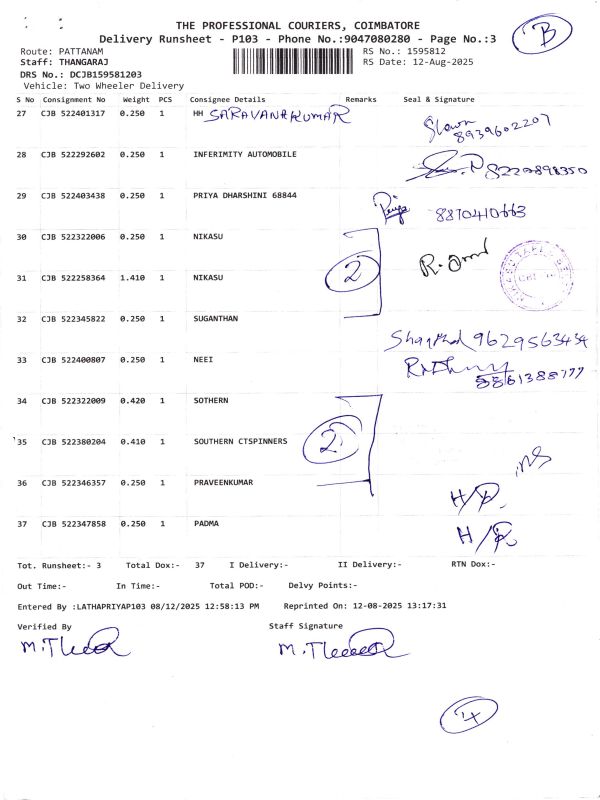 THE PROFESSIONAL COURIERS, COIMBATORE
Delivery Runsheet - P103 - Phone No.:9047080280 - Page No.:3
B
Route: PATTANAM
RS No.: 1595812
Staff: THANGARAJ
RS Date: 12-Aug-2025
DRS No.: DCJB159581203
Vehicle: Two Wheeler Delivery
S No Consignment No Weight PCS Consignee Details Remarks Seal & Signature
27 CJB 522401317 0.250 1 HH SARAVANAKUMAR
8939602207
28 CJB 522292602 0.250 1 INFERIMITY AUTOMOBILE
8220898350
29 CJB 522403438 0.250 1 PRIYA DHARSHINI 68844
Priya 8870410663
30 CJB 522322006 0.250 1 NIKASU
2
31 CJB 522258364 1.410 1 NIKASU
32 CJB 522345822 0.250 1 SUGANTHAN
9629563434
33 CJB 522400807 0.250 1 NEEI
8861388777
34 CJB 522322009 0.420 1 SOTHERN
2
35 CJB 522380204 0.410 1 SOUTHERN CTSPINNERS
36 CJB 522346357 0.250 1 PRAVEENKUMAR
37 CJB 522347858 0.250 1 PADMA
Tot. Runsheet:- 3 Total Dox:- 37 I Delivery:- II Delivery:- RTN Dox:-
Out Time:- In Time:- Total POD:- Delvy Points:-
Entered By :LATHAPRIYAP103 08/12/2025 12:58:13 PM Reprinted On: 12-08-2025 13:17:31
Verified By Staff Signature